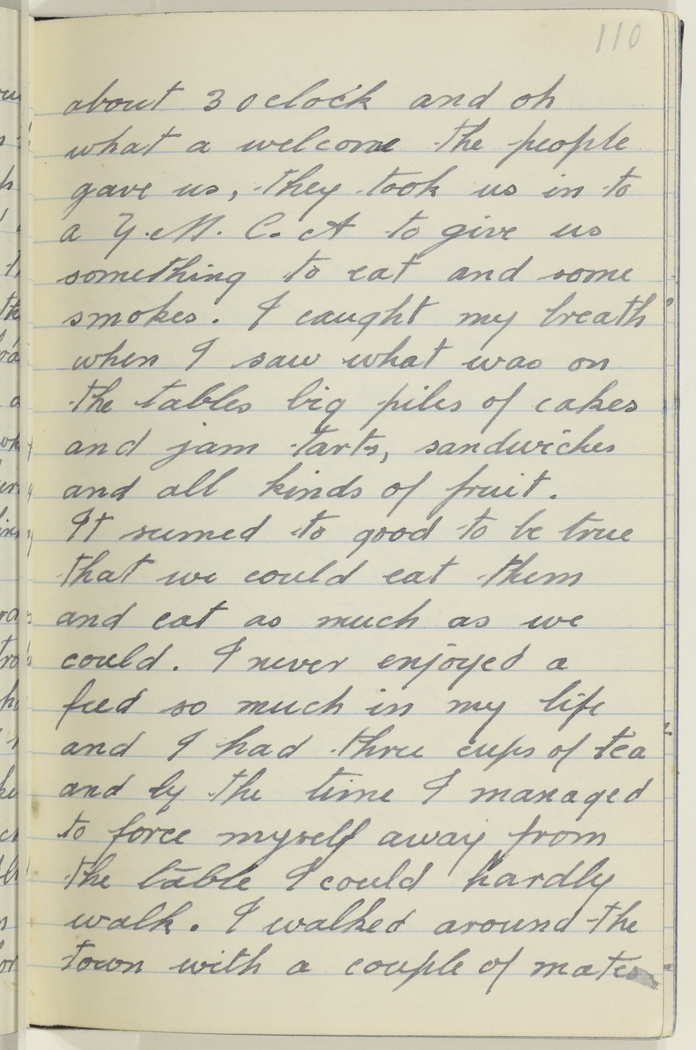 110
about 3 oclock and oh
what a welcome the people
gave us, they took us in to
a Y.M.C.A to give us
something to eat and some
smokes. I caught my breath
when I saw what was on
the tables big piles of cakes
and jam tarts, sandwiches
and all kinds of fruit.
It semed to good to be true
that we could eat them
and eat as much as we
could. I never enjoyed a
feed so much in my life
and I had three cups of tea
and by the time I managed
to force myself away from
the table I could hardly
walk. I walked around the
town with a couple of mates